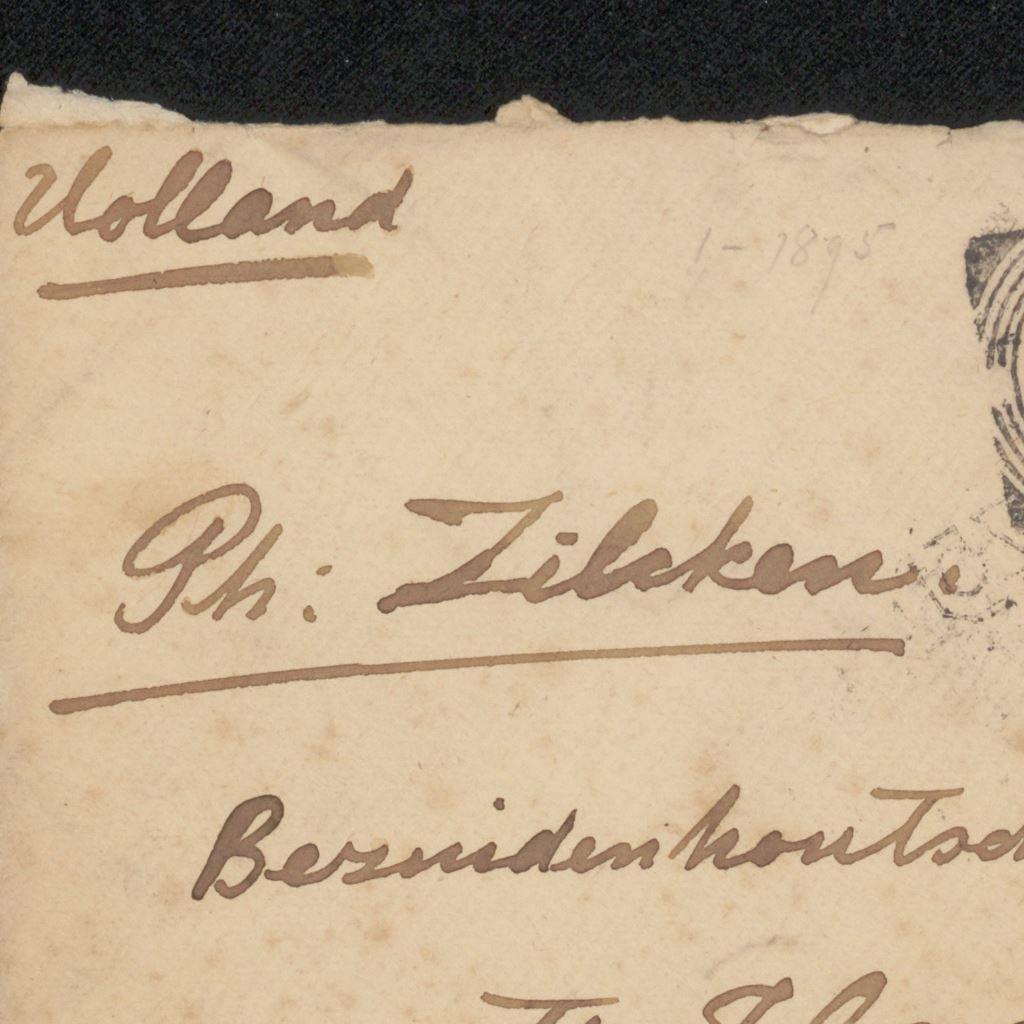 Holland
1 - 1895
Ph: Zilcken.
Bezuidenhoutsch